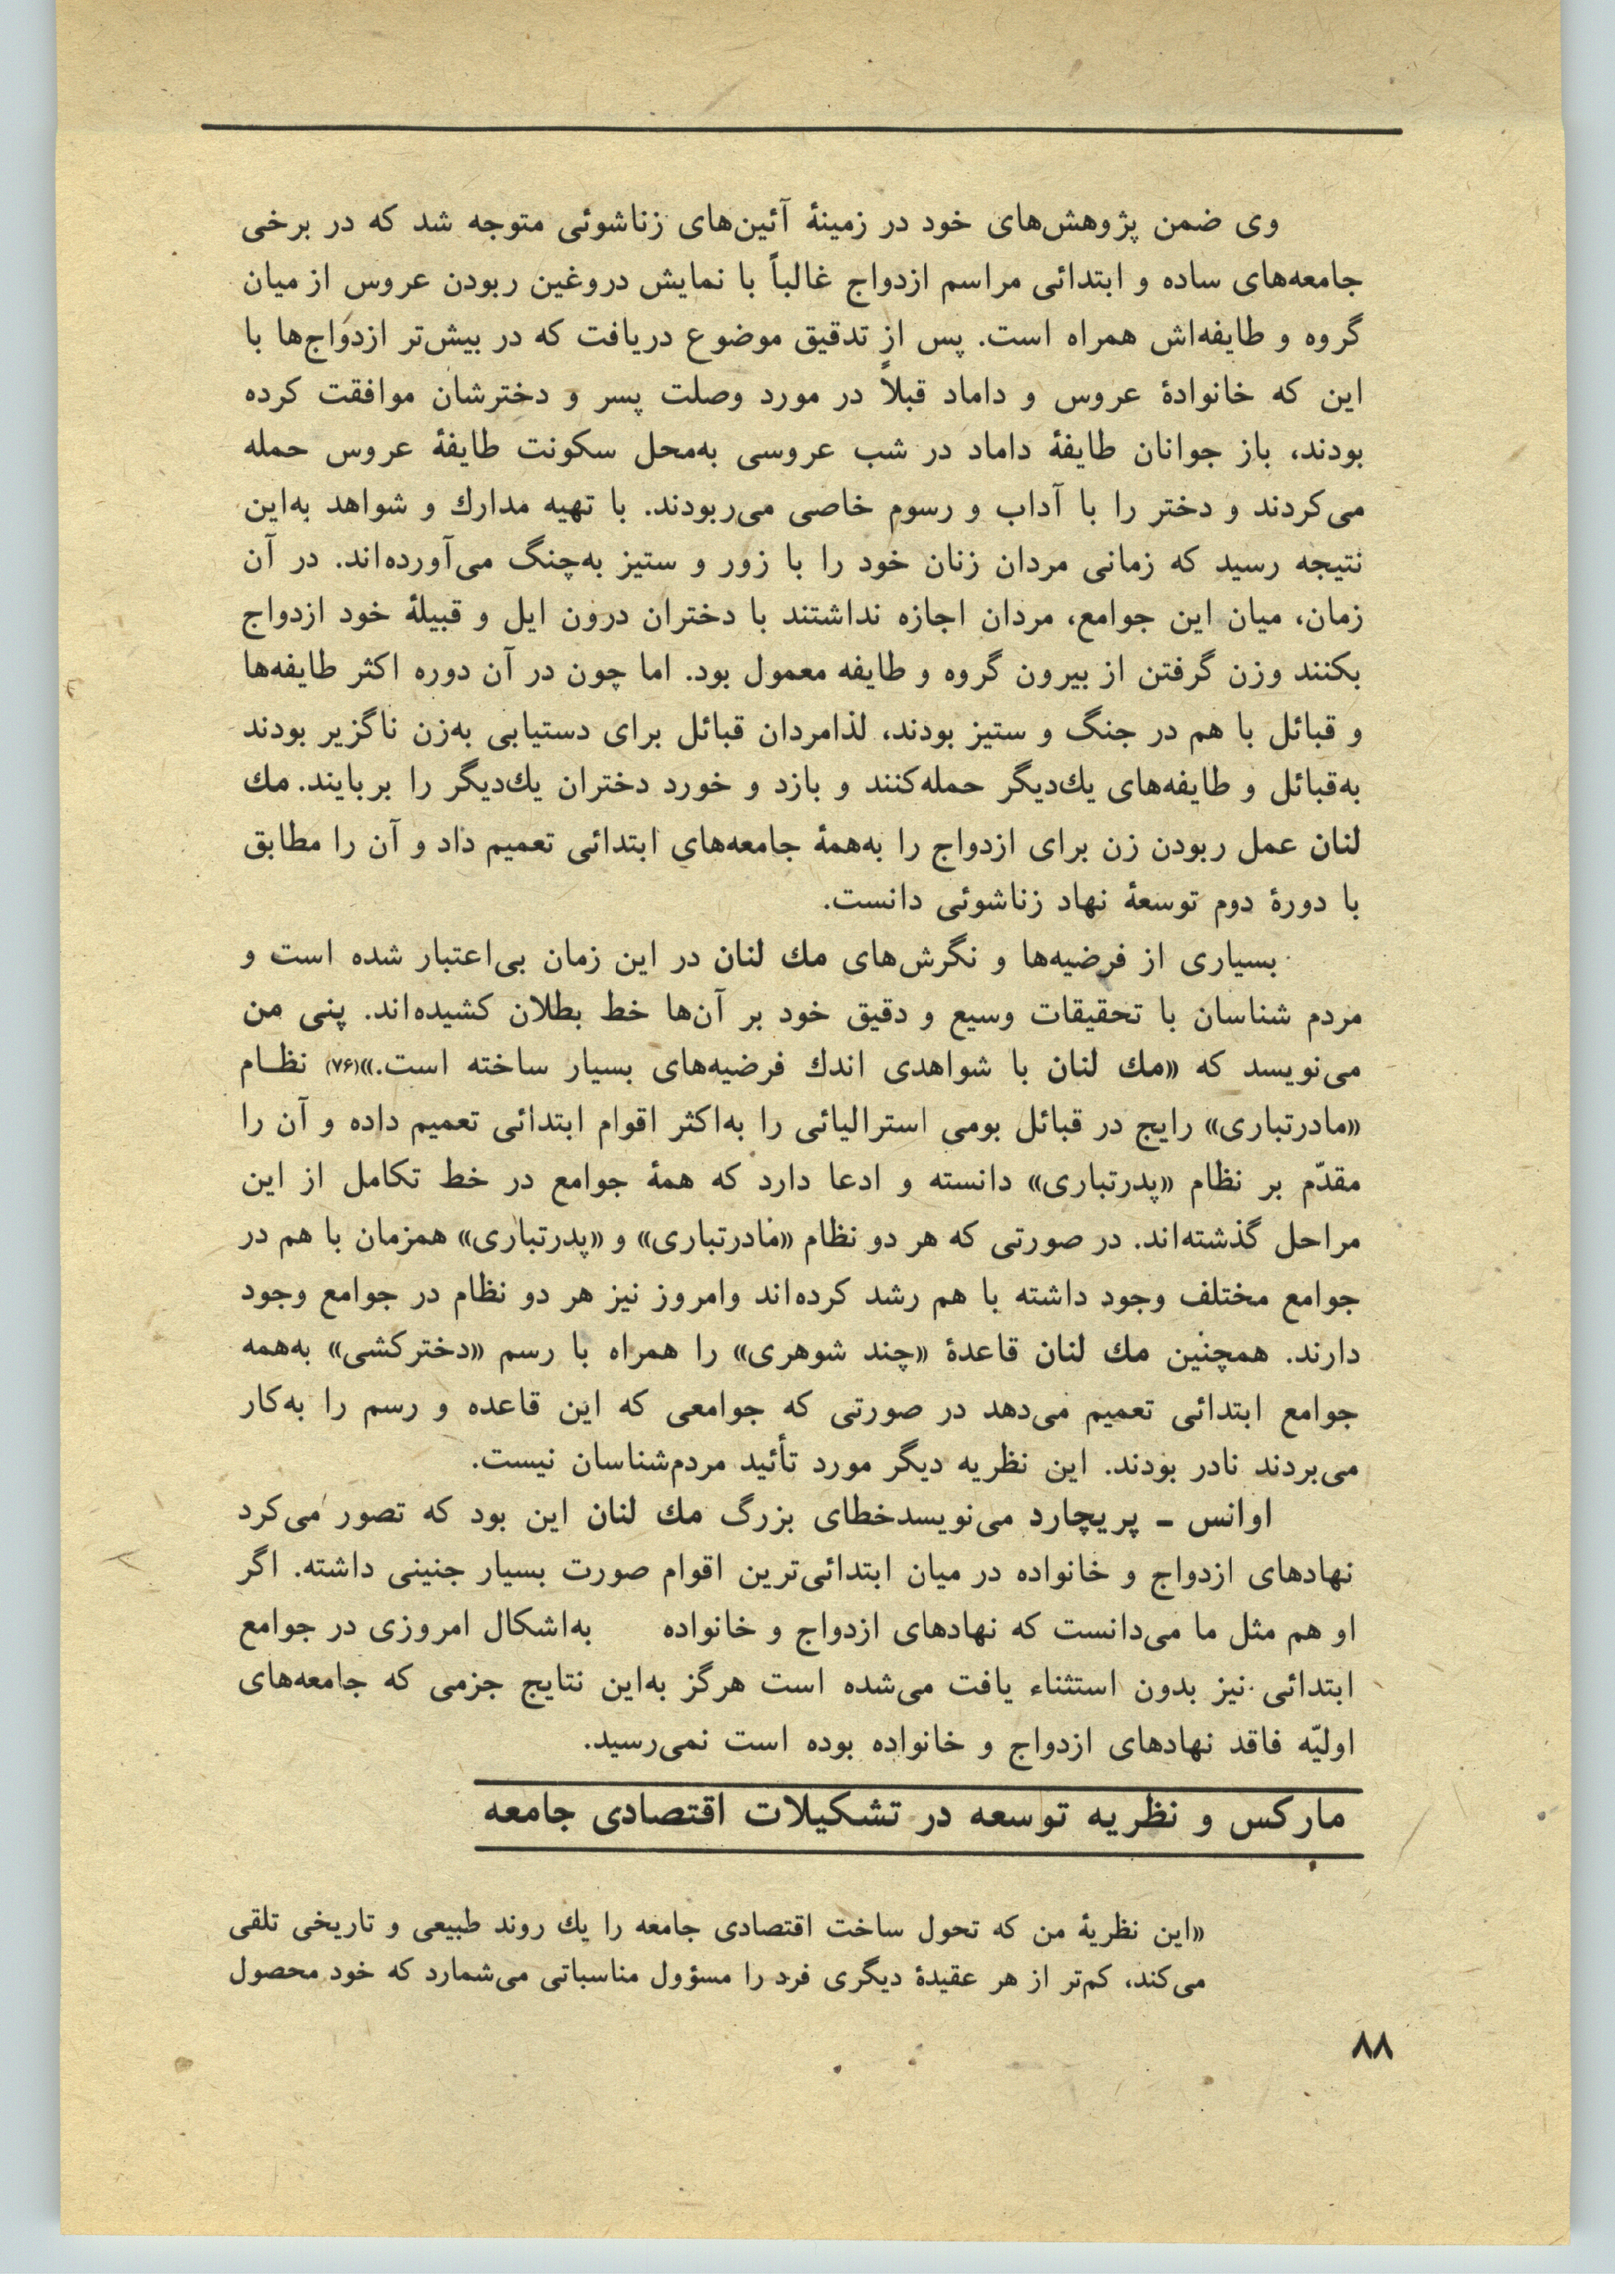 وی ضمن پژوهش‌های خود در زمینهٔ آئین‌های زناشوئی متوجه شد که در برخی
جامعه‌های ساده و ابتدائی مراسم ازدواج غالباً با نمایش دروغین ربودن عروس از میان
گروه و طایفه‌اش همراه است. پس از تدقیق موضوع دریافت که در بیش‌تر ازدواج‌ها با
این که خانوادهٔ عروس و داماد قبلاً در مورد وصلت پسر و دخترشان موافقت کرده
بودند، باز جوانان طایفهٔ داماد در شب عروسی به‌محل سکونت طایفهٔ عروس حمله
می‌کردند و دختر را با آداب و رسوم خاصی می‌ربودند. با تهیه مدارك و شواهد به‌این
نتیجه رسید که زمانی مردان زنان خود را با زور و ستیز به‌چنگ می‌آورده‌اند. در آن
زمان، میان این جوامع، مردان اجازه نداشتند با دختران درون ایل و قبیلهٔ خود ازدواج
بکنند وزن گرفتن از بیرون گروه و طایفه معمول بود. اما چون در آن دوره اکثر طایفه‌ها
و قبائل با هم در جنگ و ستیز بودند، لذامردان قبائل برای دستیابی به‌زن ناگزیر بودند
به‌قبائل و طایفه‌های یك‌دیگر حمله‌کنند و بازد و خورد دختران یك‌دیگر را بربایند. مك
لنان عمل ربودن زن برای ازدواج را به‌همهٔ جامعه‌های ابتدائی تعمیم داد و آن را مطابق
با دورهٔ دوم توسعهٔ نهاد زناشوئی دانست.
بسیاری از فرضیه‌ها و نگرش‌های مك لنان در این زمان بی‌اعتبار شده است و
مردم شناسان با تحقیقات وسیع و دقیق خود بر آن‌ها خط بطلان کشیده‌اند. پنی من
می‌نویسد که «مك لنان با شواهدی اندك فرضیه‌های بسیار ساخته است.»(۷۶) نظـام
«مادرتباری» رایج در قبائل بومی استرالیائی را به‌اکثر اقوام ابتدائی تعمیم داده و آن را
مقدّم بر نظام «پدرتباری» دانسته و ادعا دارد که همهٔ جوامع در خط تکامل از این
مراحل گذشته‌اند. در صورتی که هر دو نظام «مادرتباری» و «پدرتباری» همزمان با هم در
جوامع مختلف وجود داشته با هم رشد کرده‌اند وامروز نیز هر دو نظام در جوامع وجود
دارند. همچنین مك لنان قاعدهٔ «چند شوهری» را همراه با رسم «دخترکشی» به‌همه
جوامع ابتدائی تعمیم می‌دهد در صورتی که جوامعی که این قاعده و رسم را به‌کار
می‌بردند نادر بودند. این نظریه دیگر مورد تأئید مردم‌شناسان نیست.
اوانس ـ پریچارد می‌نویسدخطای بزرگ مك لنان این بود که تصور می‌کرد
نهادهای ازدواج و خانواده در میان ابتدائی‌ترین اقوام صورت بسیار جنینی داشته. اگر
او هم مثل ما می‌دانست که نهادهای ازدواج و خانواده به‌اشکال امروزی در جوامع
ابتدائی نیز بدون استثناء یافت می‌شده است هرگز به‌این نتایج جزمی که جامعه‌های
اولیّه فاقد نهادهای ازدواج و خانواده بوده است نمی‌رسید.
مارکس و نظریه توسعه در تشکیلات اقتصادی جامعه
«این نظریهٔ من که تحول ساخت اقتصادی جامعه را یك روند طبیعی و تاریخی تلقی
می‌کند، کم‌تر از هر عقیدهٔ دیگری فرد را مسؤول مناسباتی می‌شمارد که خود محصول
۸۸